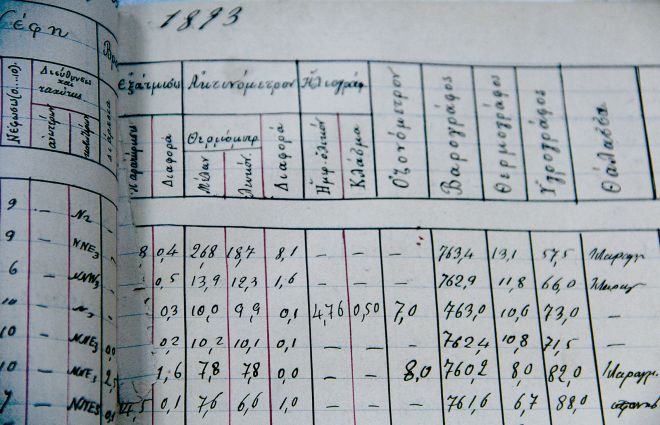 1893
Νέφη
Ἐξάτμισις Ἀκτινόμετρον Ἡλιογράφ
Διεύθυνσις
και
ταχύτης
Νέφωσις(0..10).
ἀνωτέρων
κατωτέρων
Διαφορά
Θερμόμετρ
Μέλαν
Λευκόν
Διαφορά
Ἡμφ. ὁλικόν
Κλάσμα
Ὀζονόμετρον
Βαρογράφος
Θερμογράφος
Ὑγρογράφος
Θάλασσα
9 — N2 —
9 — NNE3 — 8 0,4 26,8 18,7 8,1 — — 763,4 13,1 57,5
6 — NNW3 — 0,5 13,9 12,3 1,6 — — — 762,9 11,8 66,0
10 — N3 — 0,3 10,0 9,9 0,1 4,76 0,50 7,0 763,0 10,6 73,0 —
10 — NNE3 0,0 0,2 10,2 10,1 0,1 — — — 762,4 10,8 71,5 —
10 — NNE3 2,5 1,6 7,8 7,8 0,0 — — 8,0 760,2 8,0 82,0
7 — 14,5 0,1 7,6 6,6 1,0 — — — 761,6 6,7 88,0